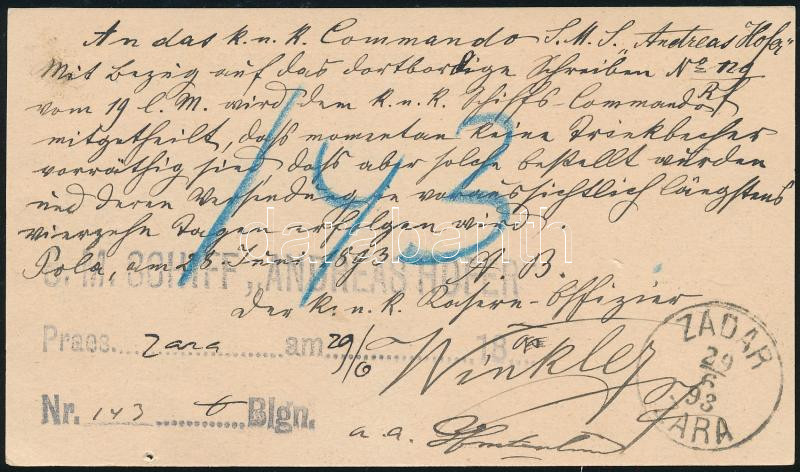 An das k. u. k. Commando S. M. S. „Andreas Hofer"
Mit Bezug auf das dortbordige Schreiben No 129
vom 19 l. M. wird dem k. u. k. Schiffs-Commando
mitgetheilt, dass momentan keine Trinkbecher
vorräthig sind, dass aber solche bestellt wurden
und deren Versendung in voraussichtlich längstens
vierzehn Tagen erfolgen wird.
Pola, am 28 Juni 1893
A. B.
S. M. SCHIFF „ANDREAS HOFER"
143
Der k. u. k. Kasern-Offizier
Praes. Zara am 29/6 18
Winkler
Nr. 143 Blgn.
a. a.
ZADAR
29
6
93
ZARA
darabanth